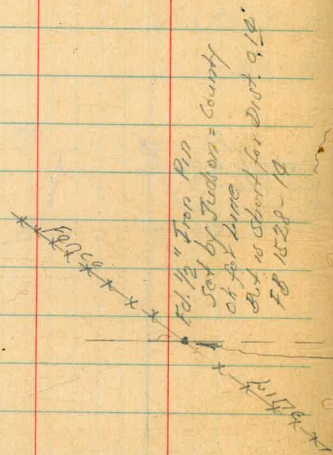 Fd. 1/2" Iron Pin
Set by Judson = County
ok for Line
But is Short for Dist. 0.14'
FB 1528-14
Fence